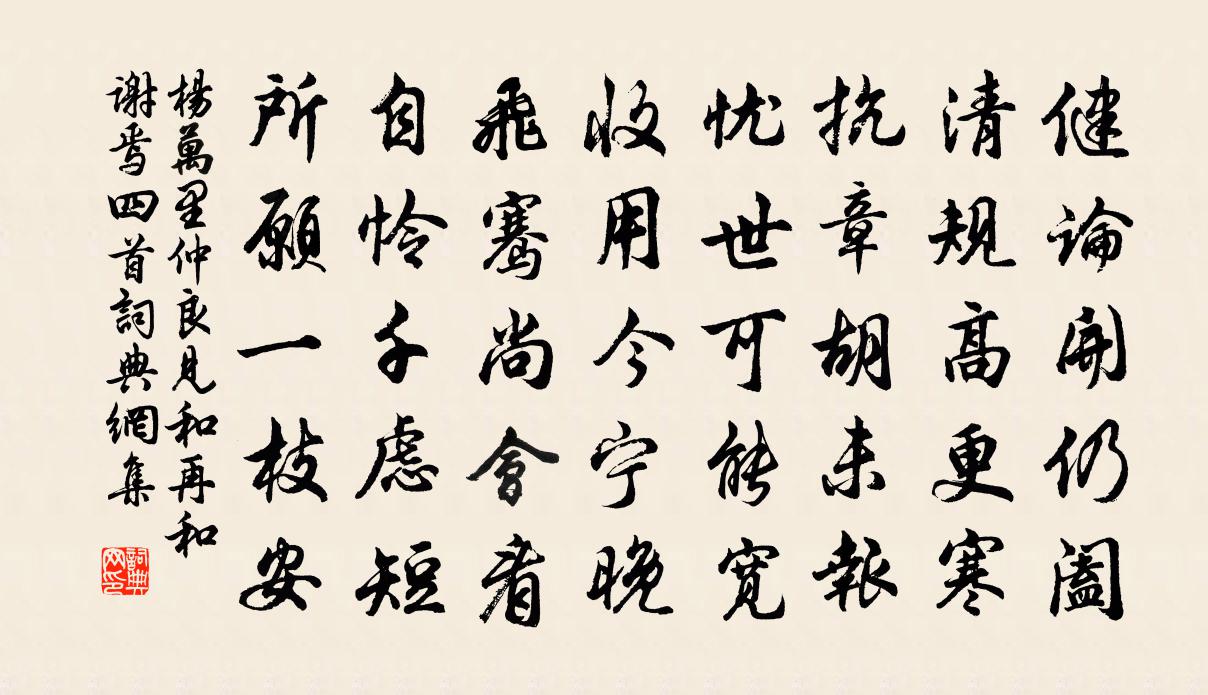 健論開仍闔
清規高更寒
抗章胡未報
忧世可能寬
收用今宁晚
飛騫尚會看
自怜千慮短
所願一枝安
楊萬里仲良見和再和
謝焉四首詞典網集
詞典
网印